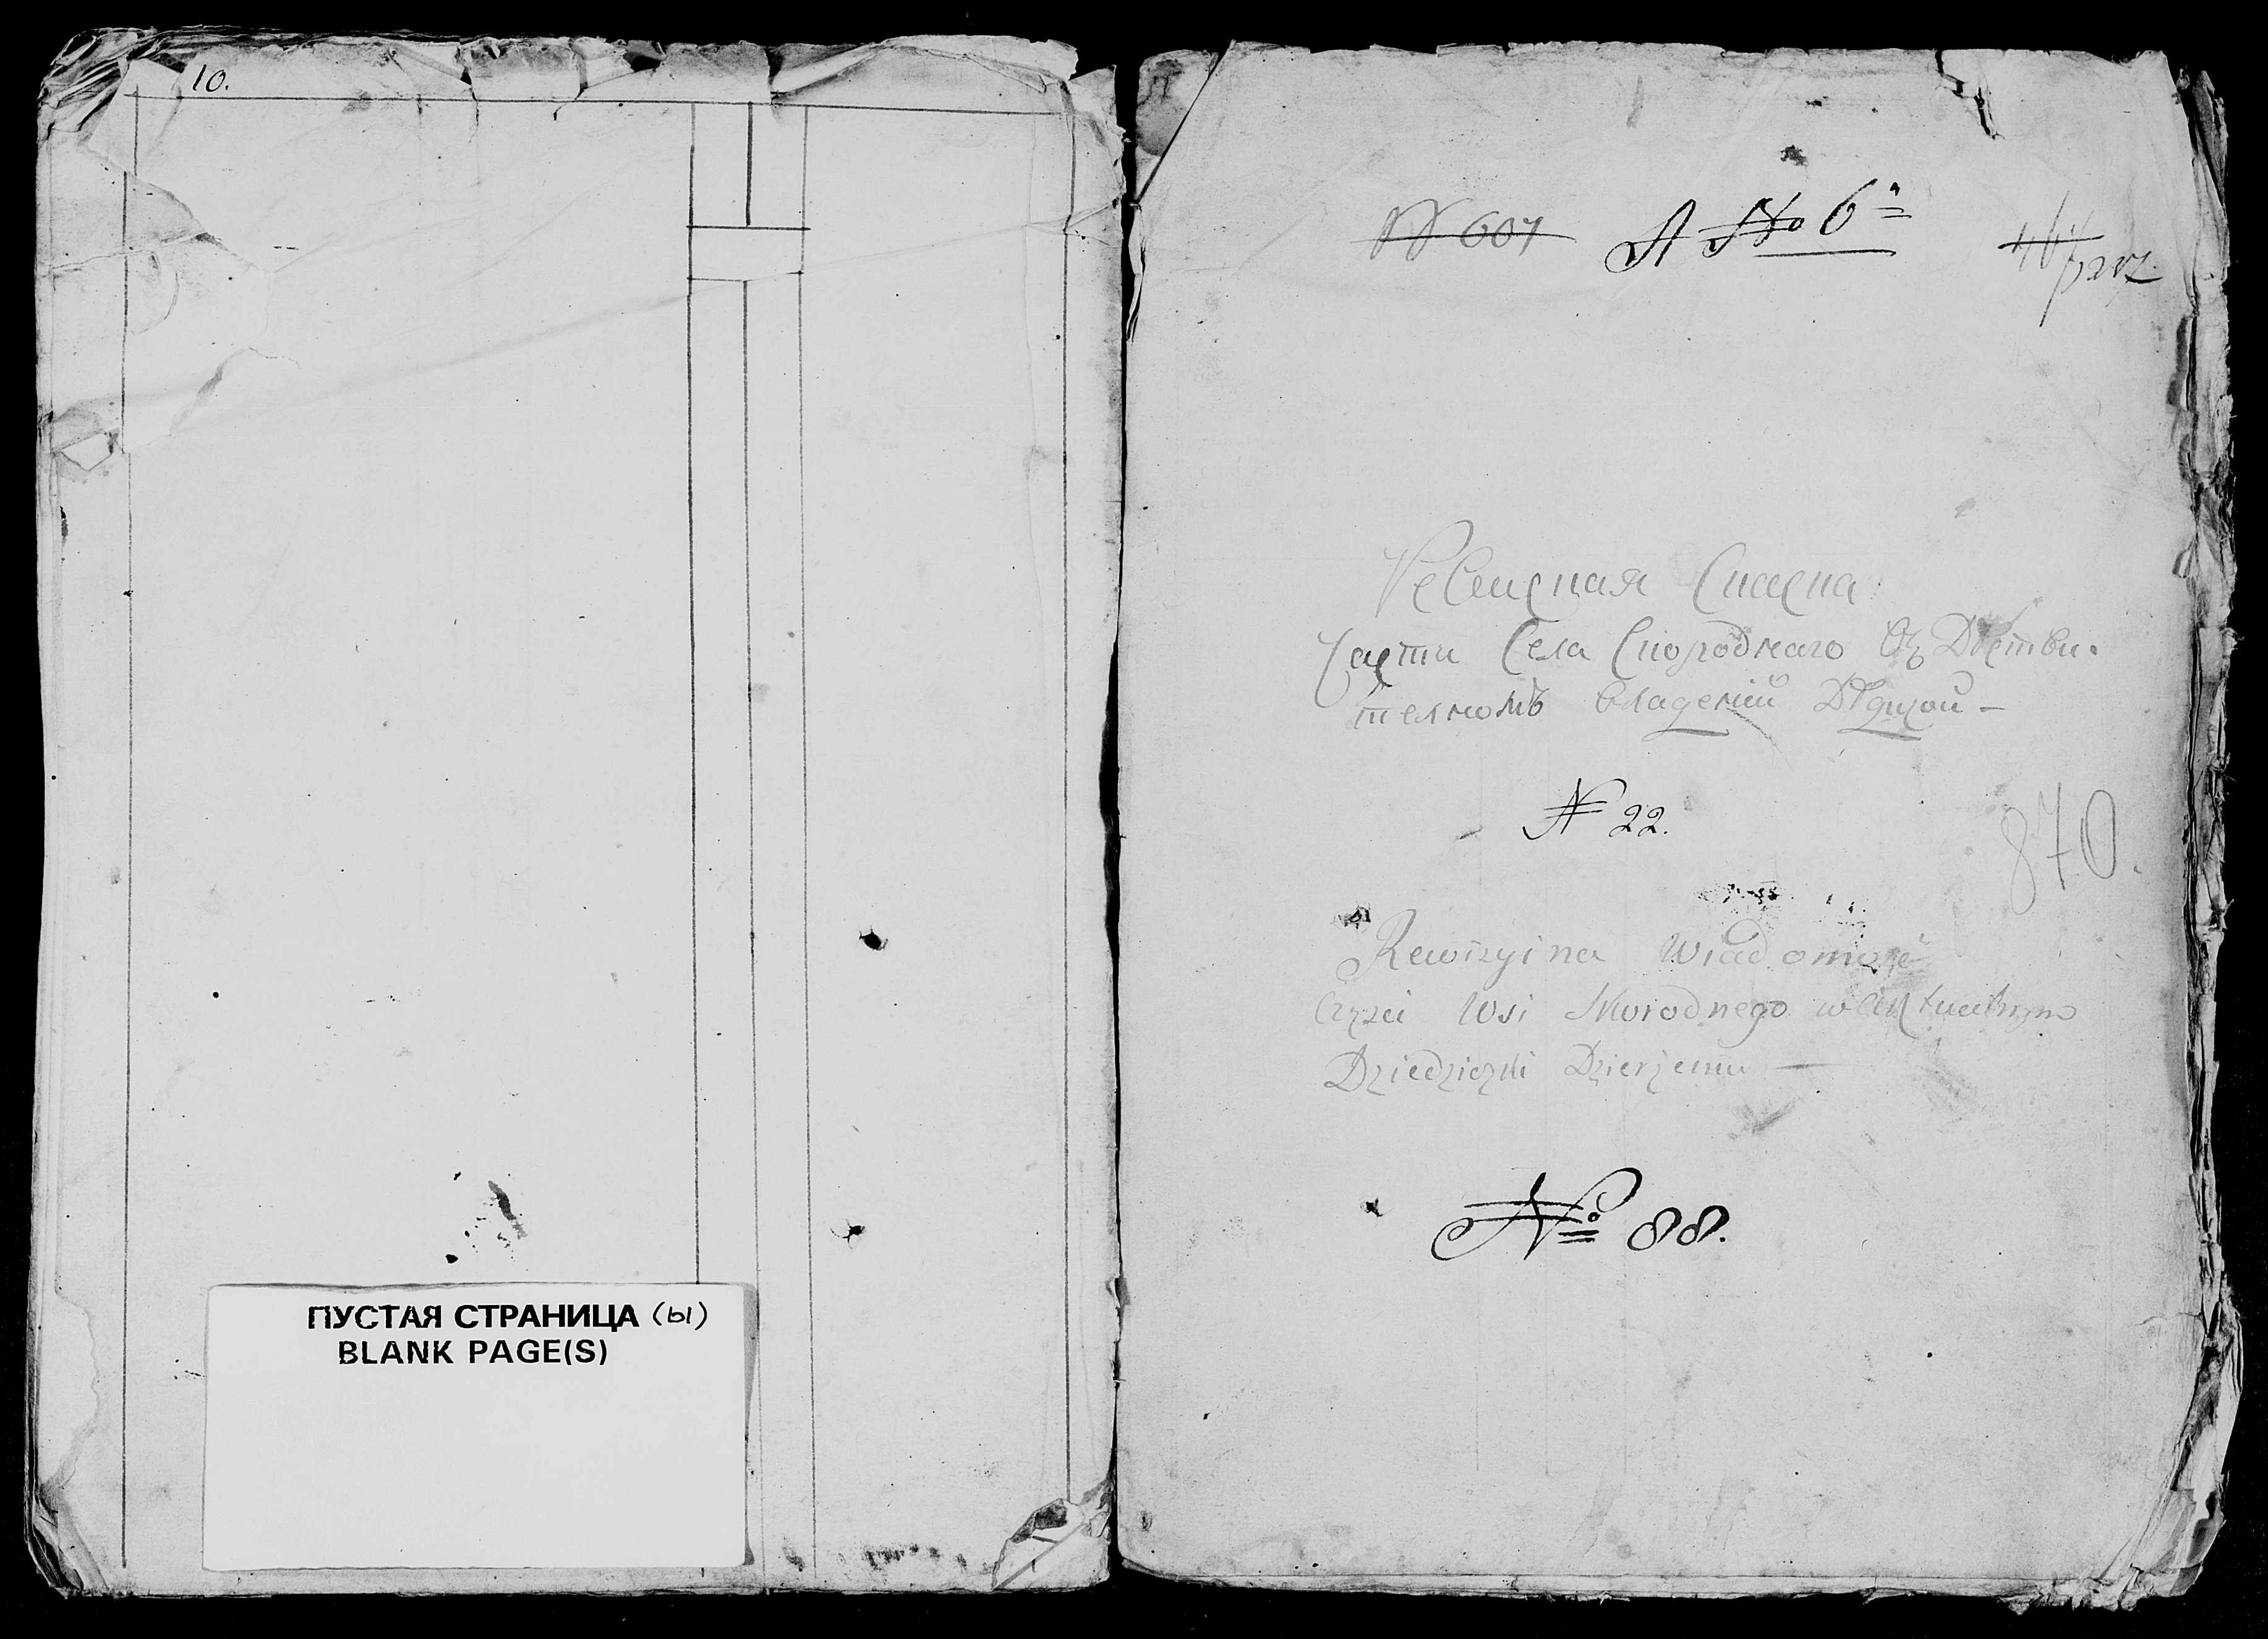 10.
ПУСТАЯ СТРАНИЦА (ы)
BLANK PAGE(S)
№ 607 А № 6й
Ревиская Скаска
Части Села Скороднаго Въ Дѣстви-
телномъ владении Дѣдизкой -
№ 22.
870.
Rewizyina Wiadomość
Części Wsi Skorodnego w Aktualnym
Dziedziczki Dzierżeniu —
№ 88.